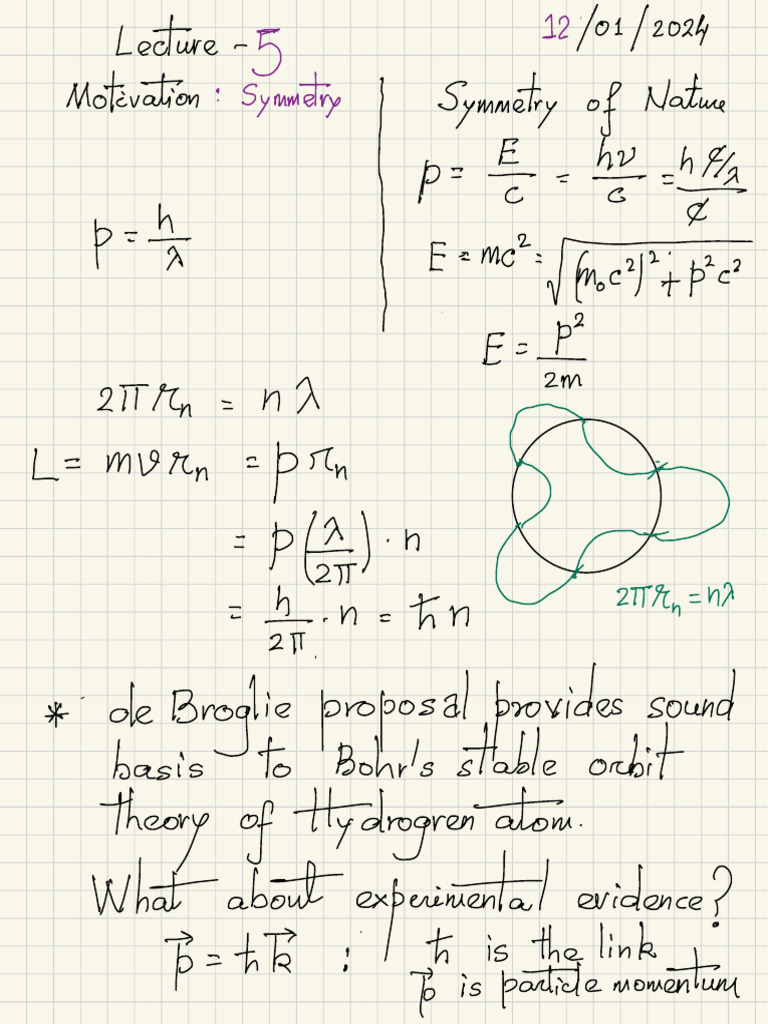 Lecture - 5
12/01/2024
Motivation : Symmetry
p = h/λ
Symmetry of Nature
p = E/c = hν/c = h c/λ / c
E = mc² = √((m₀c²)² + p²c²)
E = p²/2m
2πr_n = nλ
L = mvr_n = pr_n
= p(λ/2π) · n
= h/2π · n = ħn
2πr_n = nλ
* de Broglie proposal provides sound
basis to Bohr's stable orbit
theory of Hydrogren atom.
What about experimental evidence?
p⃗ = ħk⃗ : ħ is the link
p⃗ is particle momentum